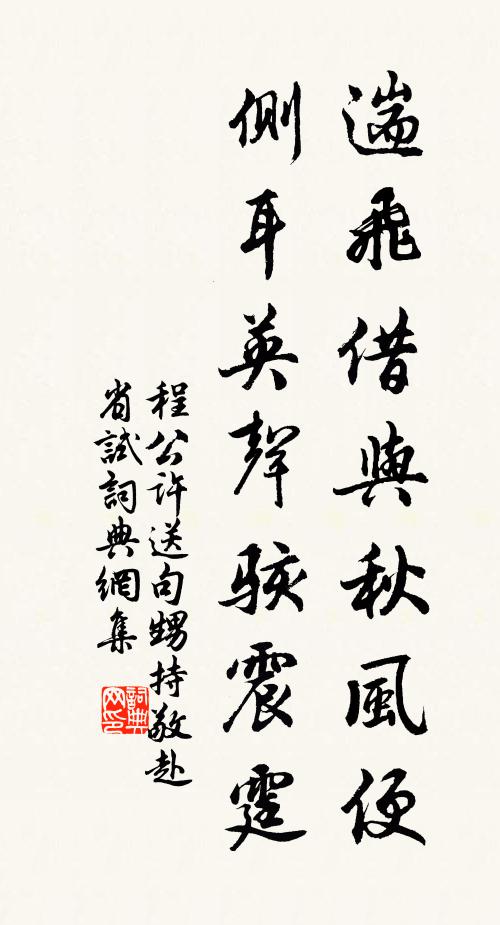 遄飛借與秋風便
側耳英聲駭震霆
程公許送句甥持敬赴
省試詞典網集
詞典网印